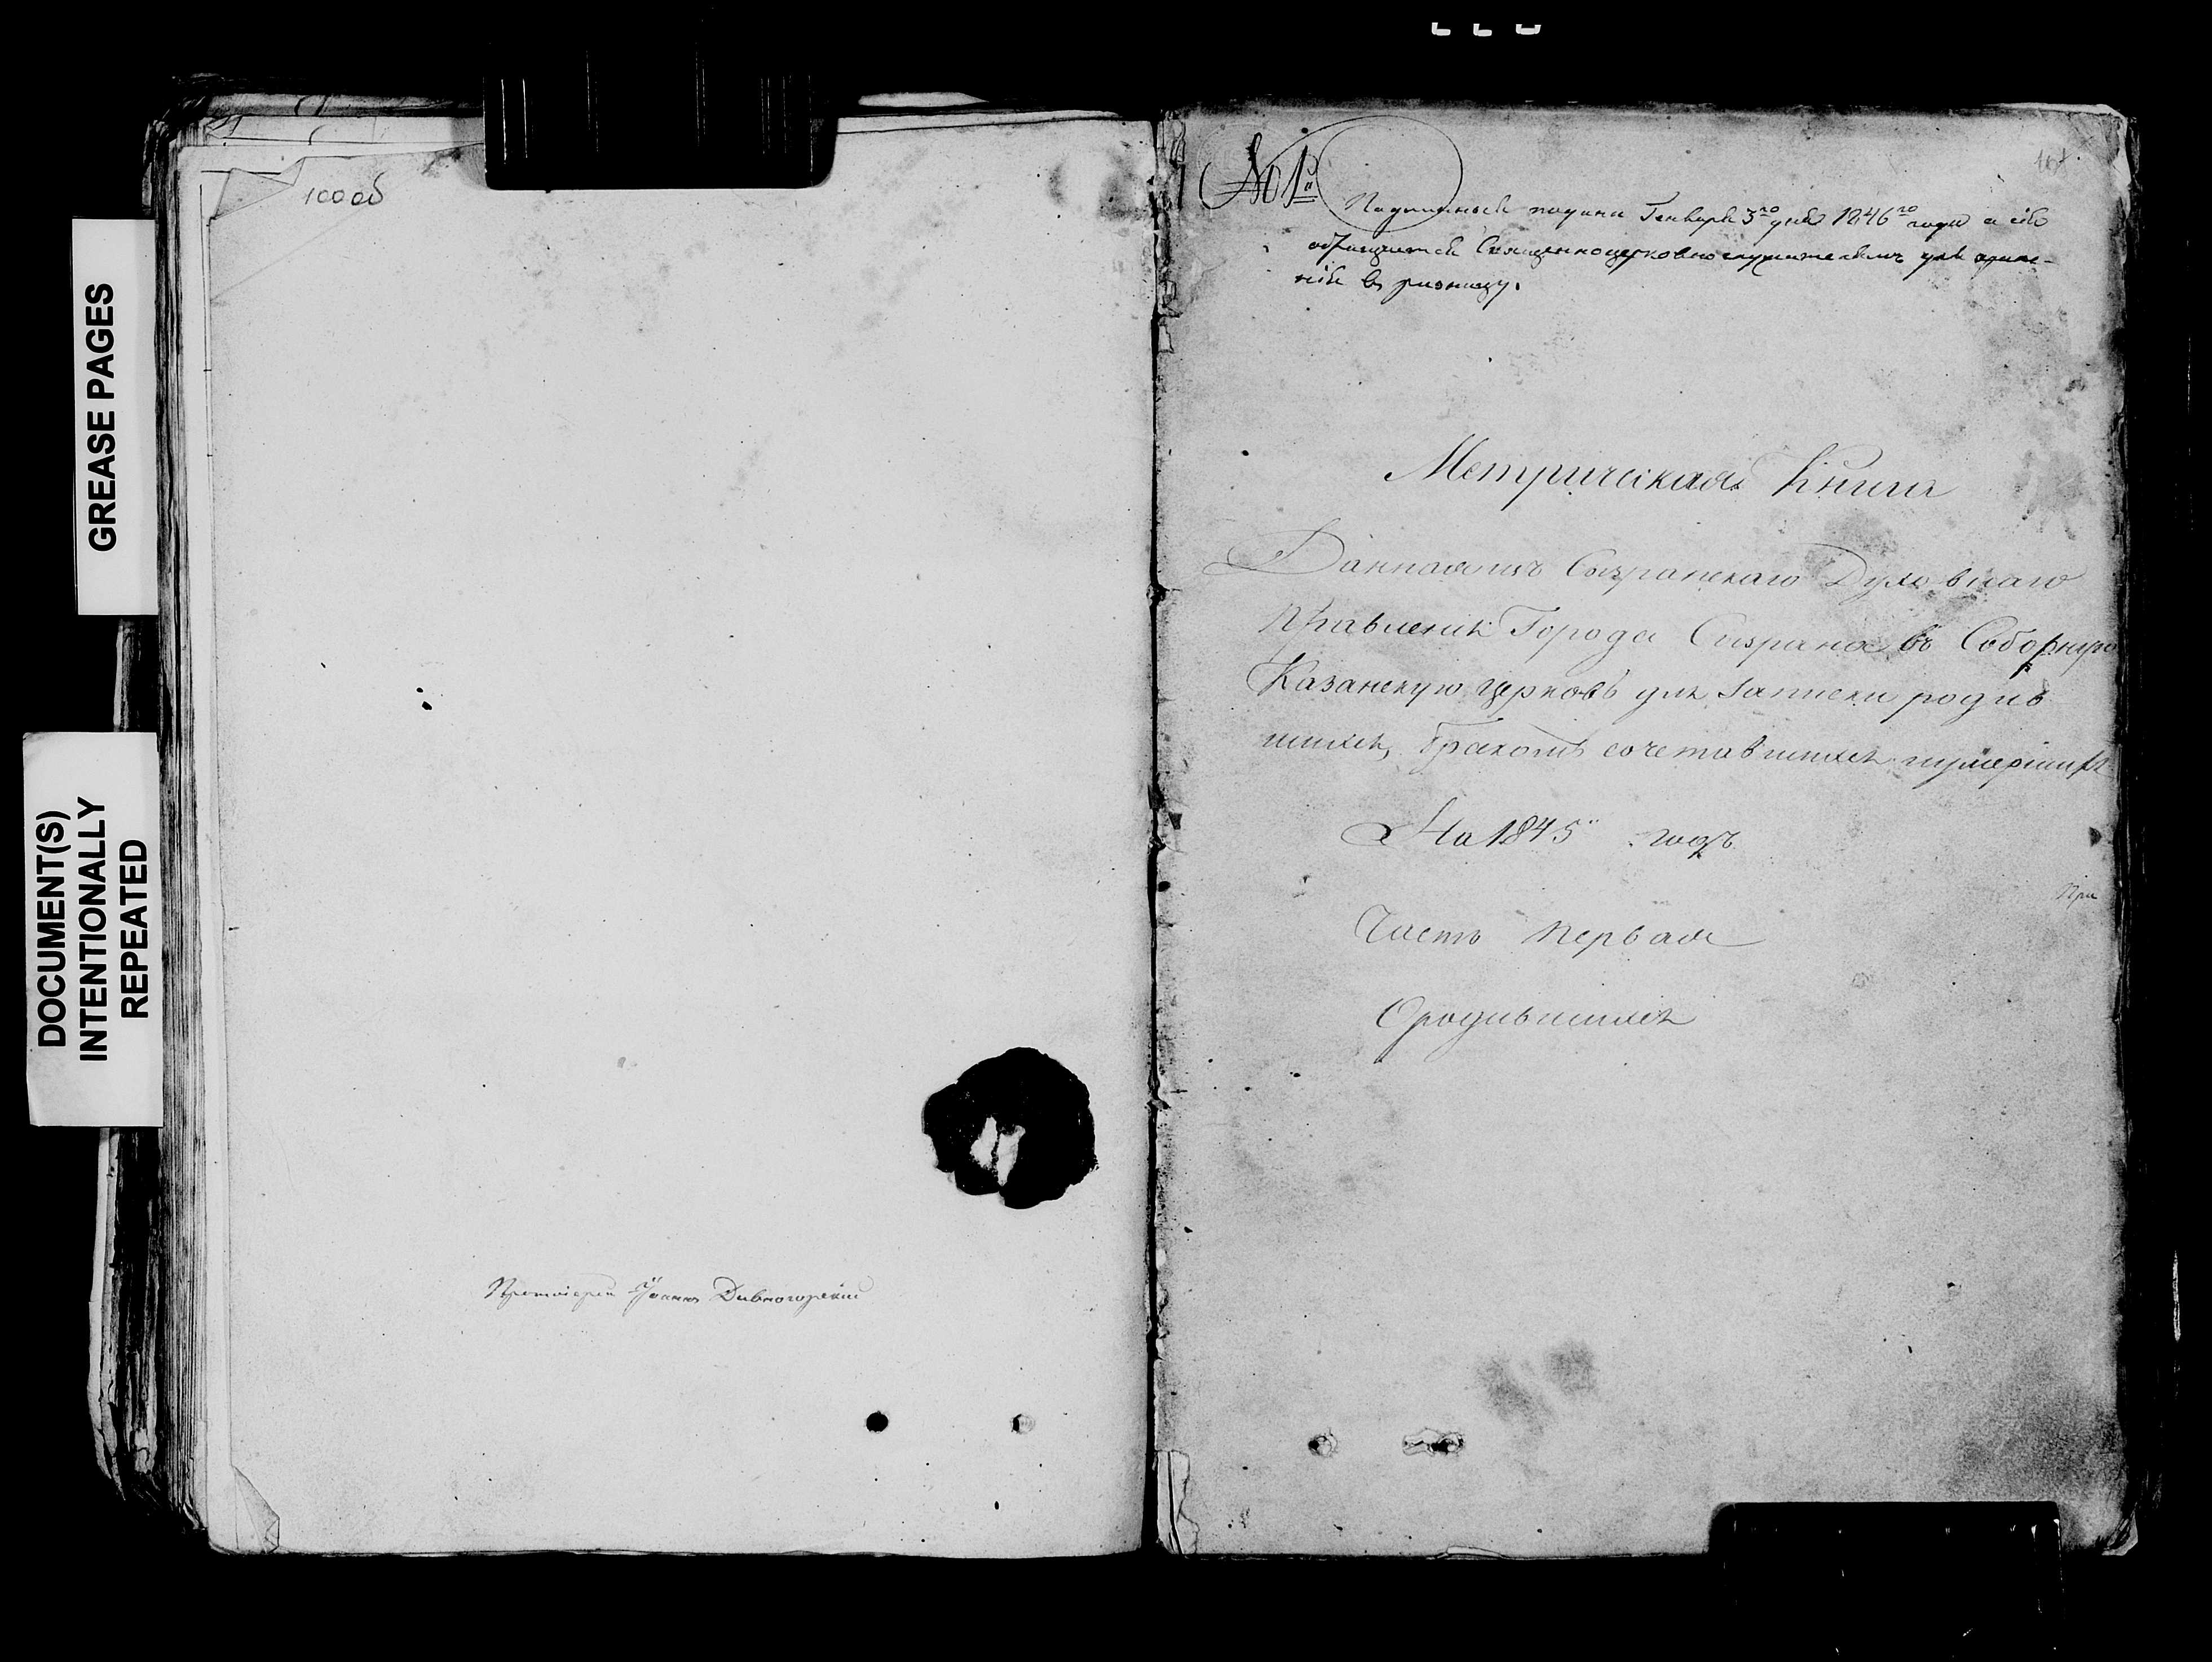 GREASE PAGES
DOCUMENT(S)
INTENTIONALLY
REPEATED
100 об
Протоіерей Іоаннъ Дивногорскій
№ 1й
Подлинная подана Генваря 3го дня 1846го года а сія
обращается Священноцерковнослужителямъ для хране-
нія въ ризницу.
Метрическая Книга
Данная изъ Сызранскаго Духовнаго
Правленія Города Сызрана въ Соборную
Казанскую церковь для записки родив
шихся, бракомъ сочетавшихся и умершихъ
На 1845й годъ
При
Часть первая
О родившихся